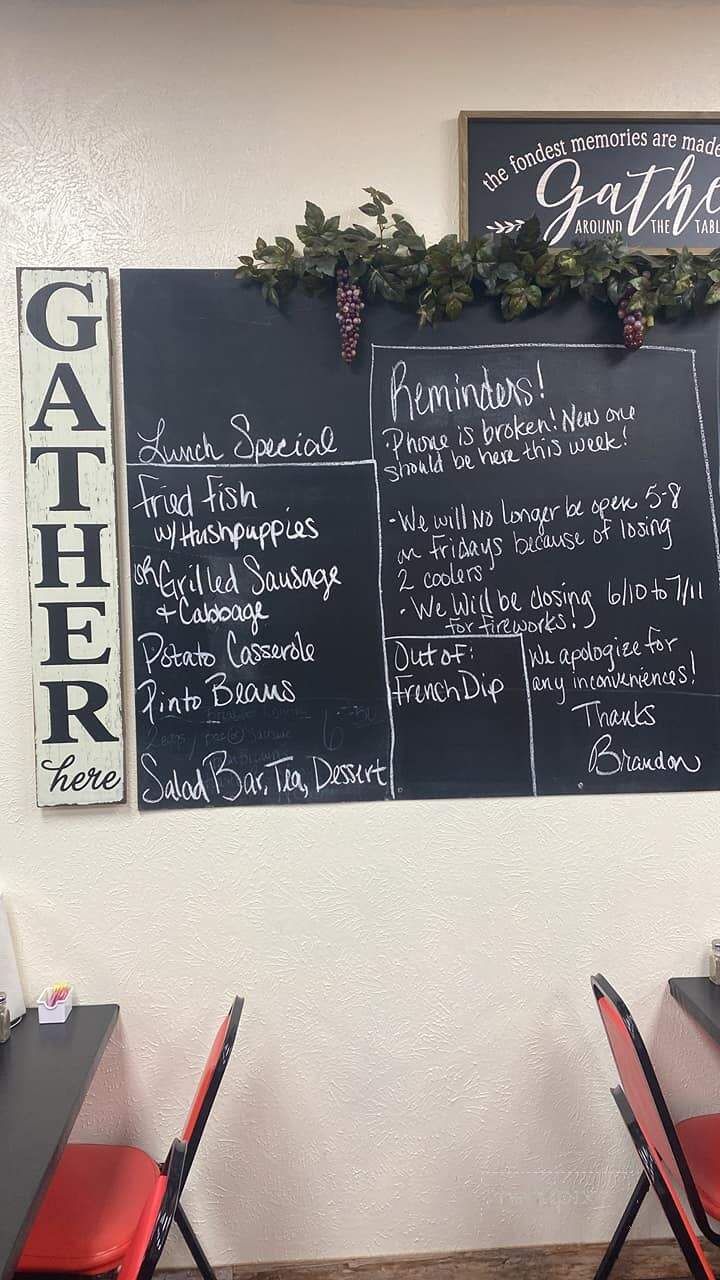 the fondest memories are made
Gathe
AROUND THE TABL
GATHER
here
Lunch Special
Fried Fish
w/Hushpuppies
OR Grilled Sausage
+ Cabbage
Potato Casserole
Pinto Beans
2 eggs,
Salad Bar, Tea, Dessert
Reminders!
·Phone is broken! New one
should be here this week!
-We will No longer be open 5-8
on Fridays because of losing
2 coolers
·We Will be closing 6/10 to 7/11
for fireworks!
Out of:
French Dip
We apologize for
any inconveniences!
Thanks
Brandon